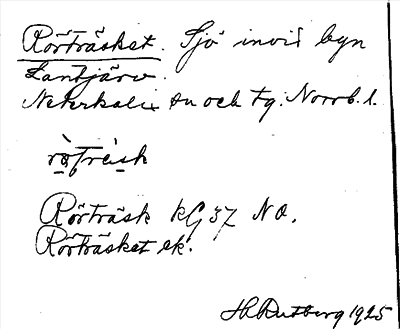 Rörträsket. Sjö invid byn
Lantjärv.
Neterkalix sn och tg. Norrb. l.
Rörträsk kG 37 NO.
Rörträsket ek.
H. Rutberg 1925